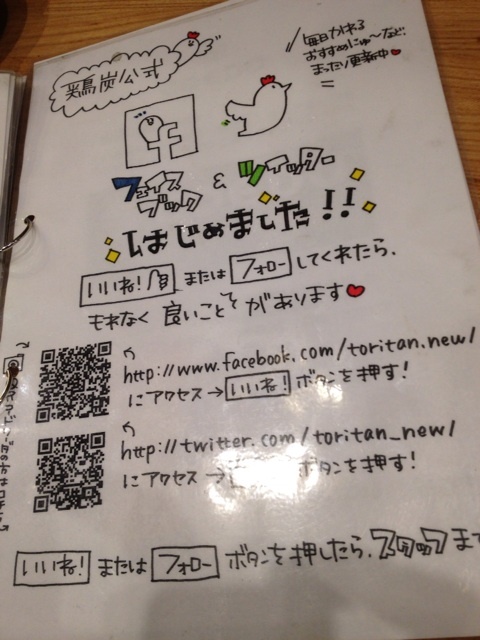 鶏炭公式
毎日かわる
おすすめにゅ〜など、
まったり更新中♥
フェイスブック & ツイッター
はじめました!!
いいね! または フォロー してくれたら、
もれなく 良いことぞがあります♥
http://www.facebook.com/toritan.new/
にアクセス→ いいね! ボタンを押す!
http://twitter.com/toritan_new/
にアクセス→ ボタンを押す!
いいね! または フォロー ボタンを押したら、スタッフまで